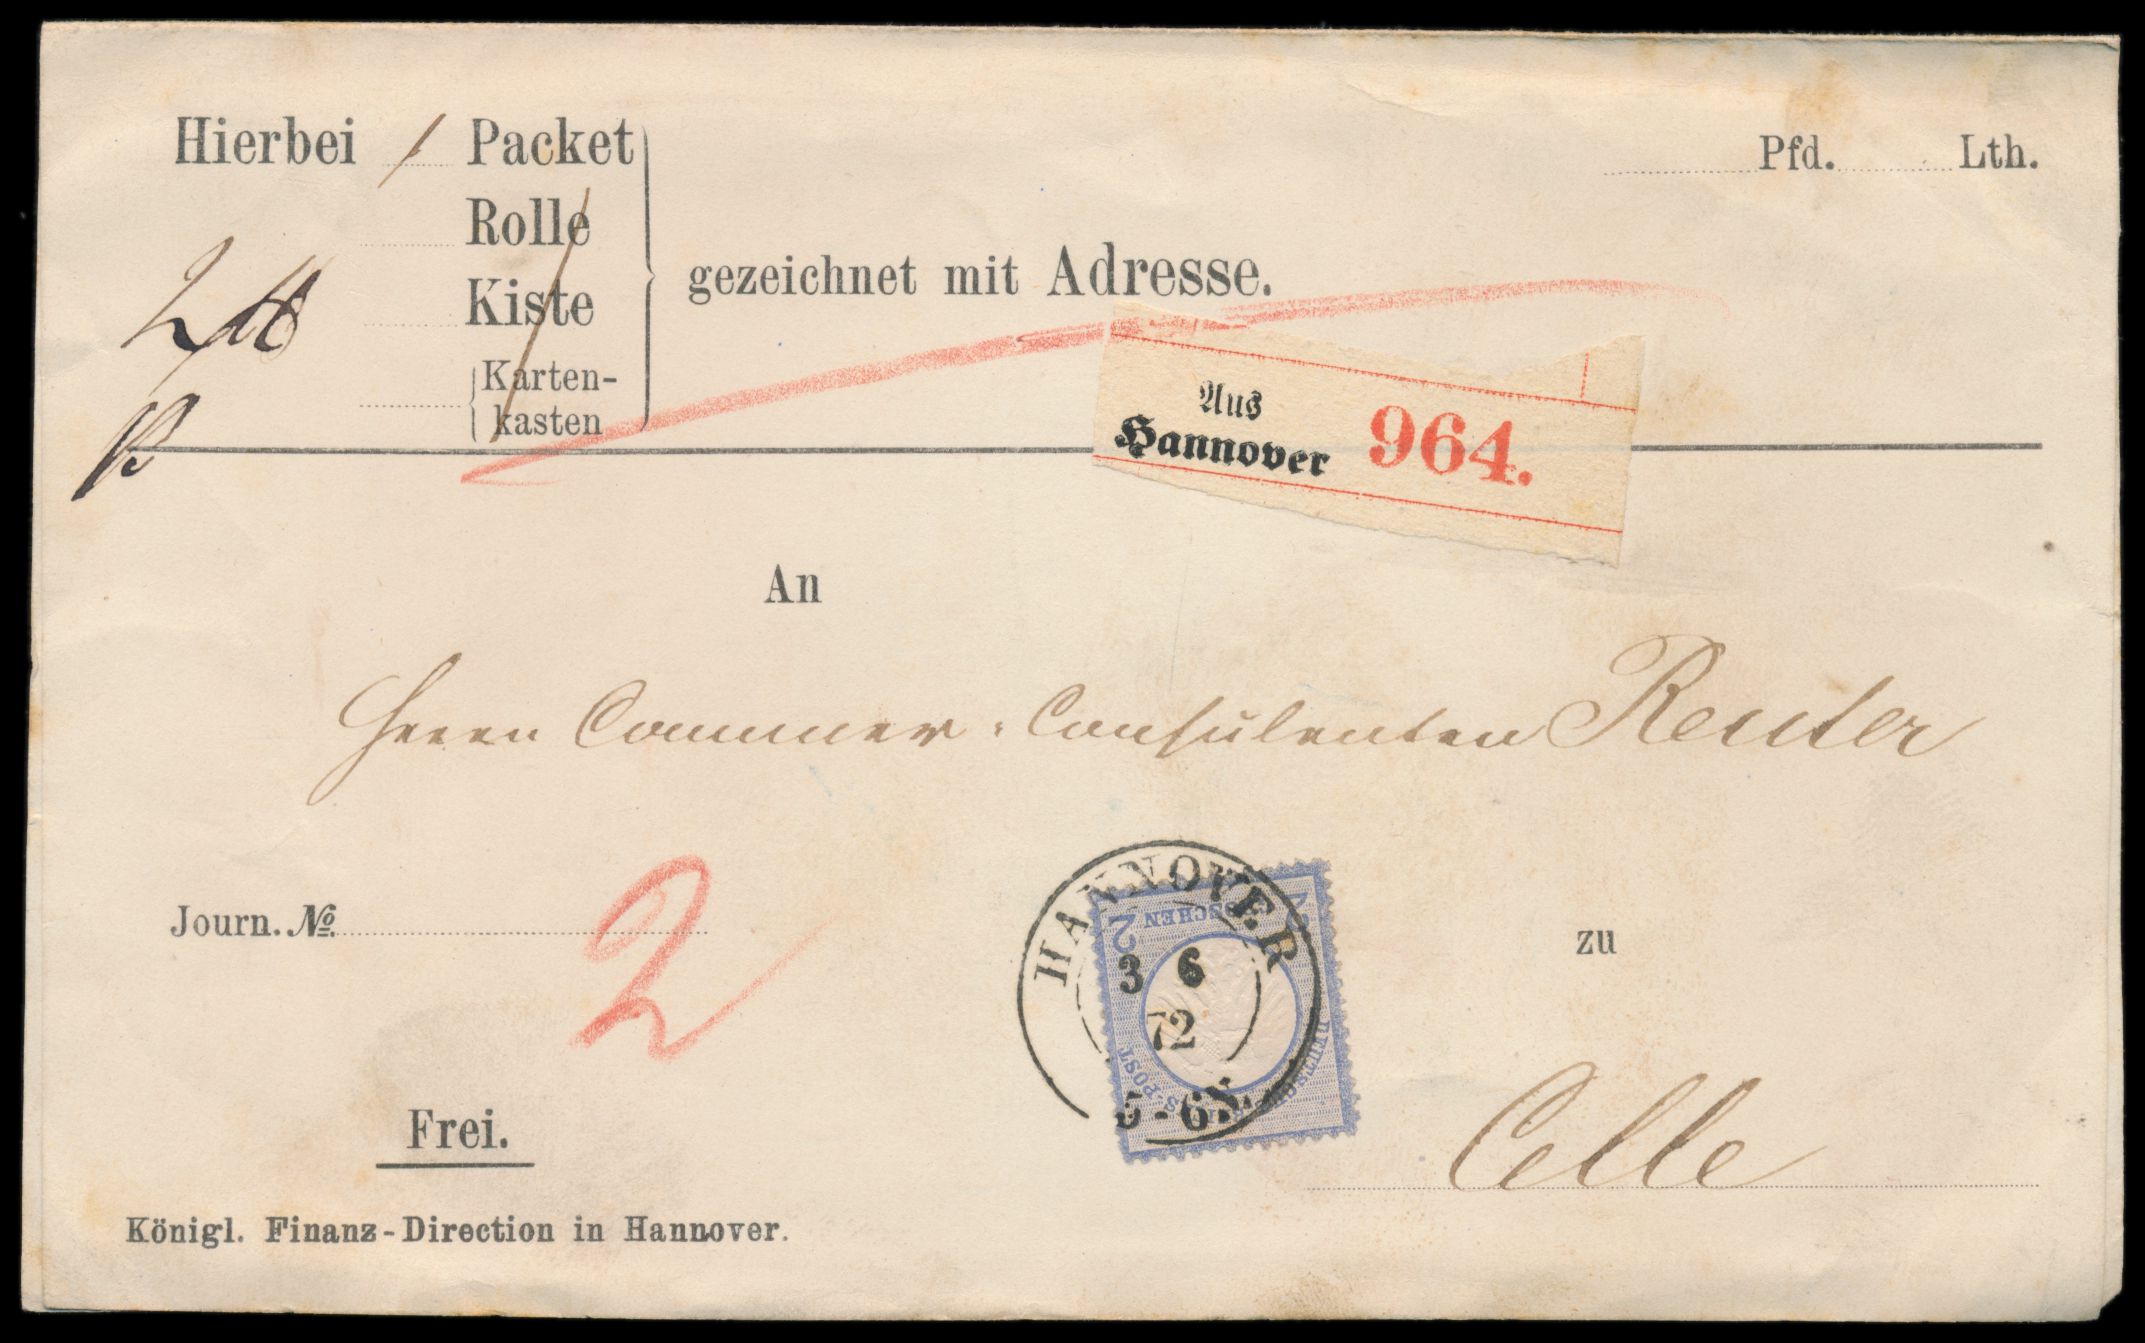 Hierbei 1 Packet
Pfd. Lth.
Rolle
Kiste
Karten-
kasten
gezeichnet mit Adresse.
Aus
Hannover 964.
An
Herrn Cammer-Consulenten Reuter
Journ. No.
2
HANNOVER
3 6
72
5-6N.
2 GROSCHEN
DEUTSCHE REICHS-POST
zu
Celle
Frei.
Königl. Finanz-Direction in Hannover.